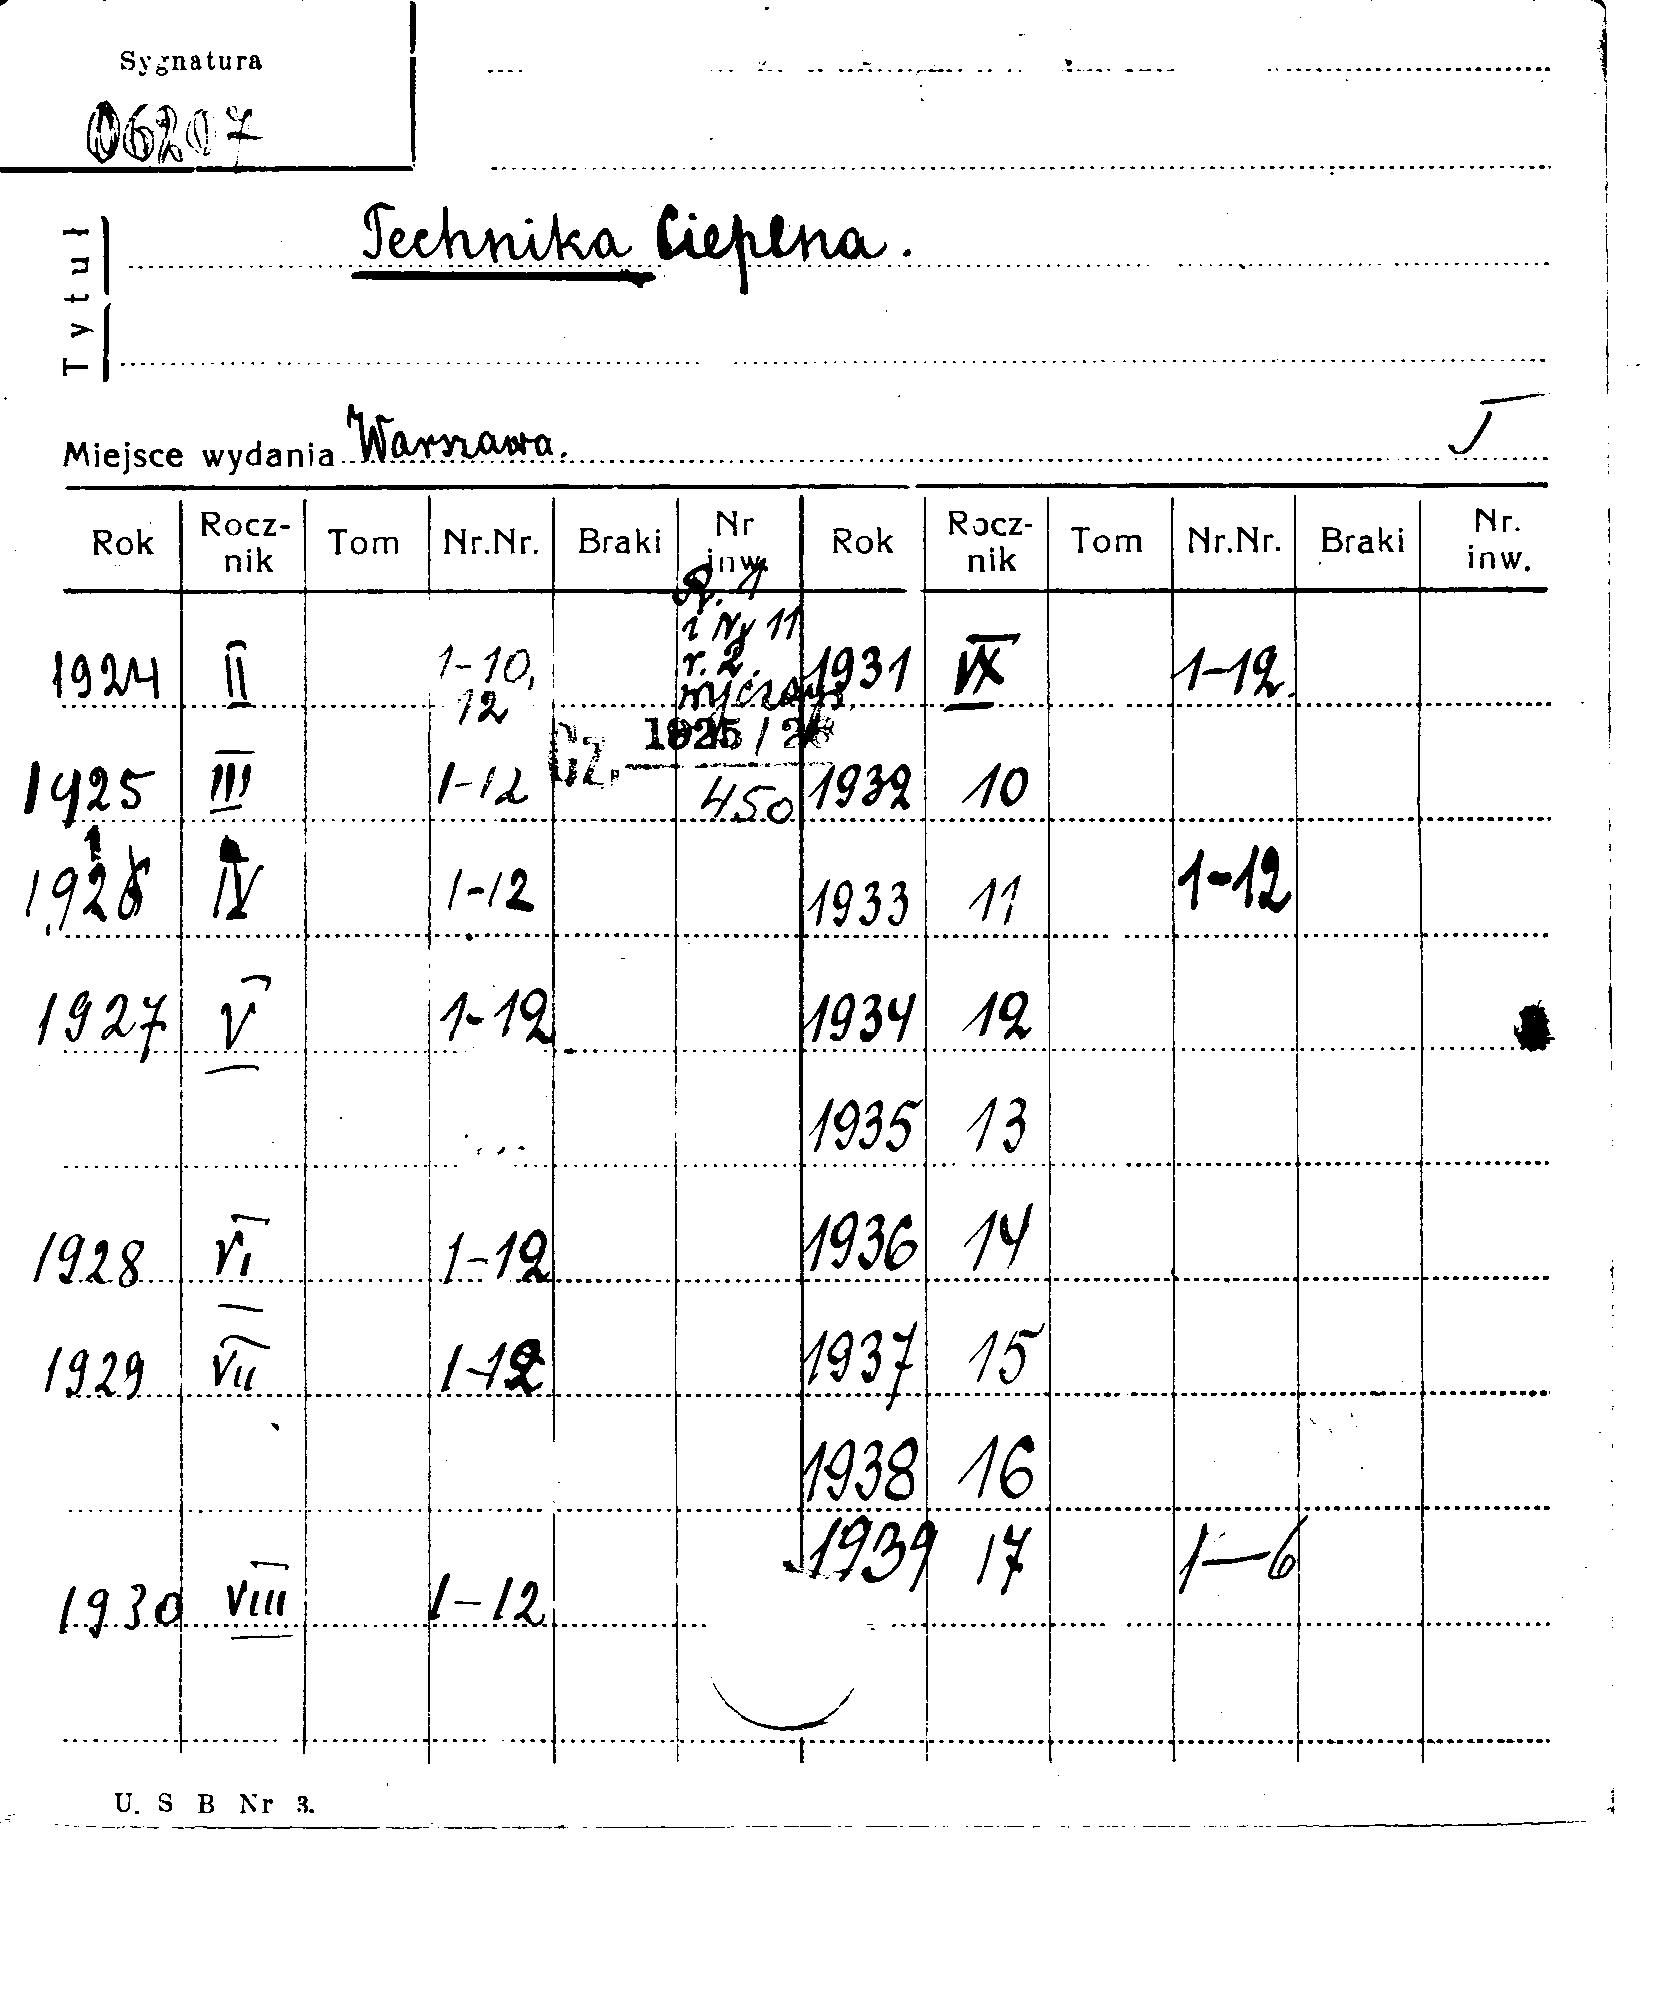 Sygnatura
06207
Tytuł
Technika Cieplna.
Miejsce wydania Warszawa.
Rok Rocz-nik Tom Nr.Nr. Braki Nr inw. Rok Rocz-nik Tom Nr.Nr. Braki Nr. inw.
R. 1
i Nr 11
r. 2.
1924 II 1-10, 12 1931 IX 1-12.
Cz. 1925/26
450
1925 III 1-12 1932 10
1926 IV 1-12 1933 11 1-12
1927 V 1-12 1934 12
1935 13
1928 VI 1-12 1936 14
1929 VII 1-12 1937 15
1938 16
1939 17 1-6
1930 VIII 1-12
U. S B Nr 3.